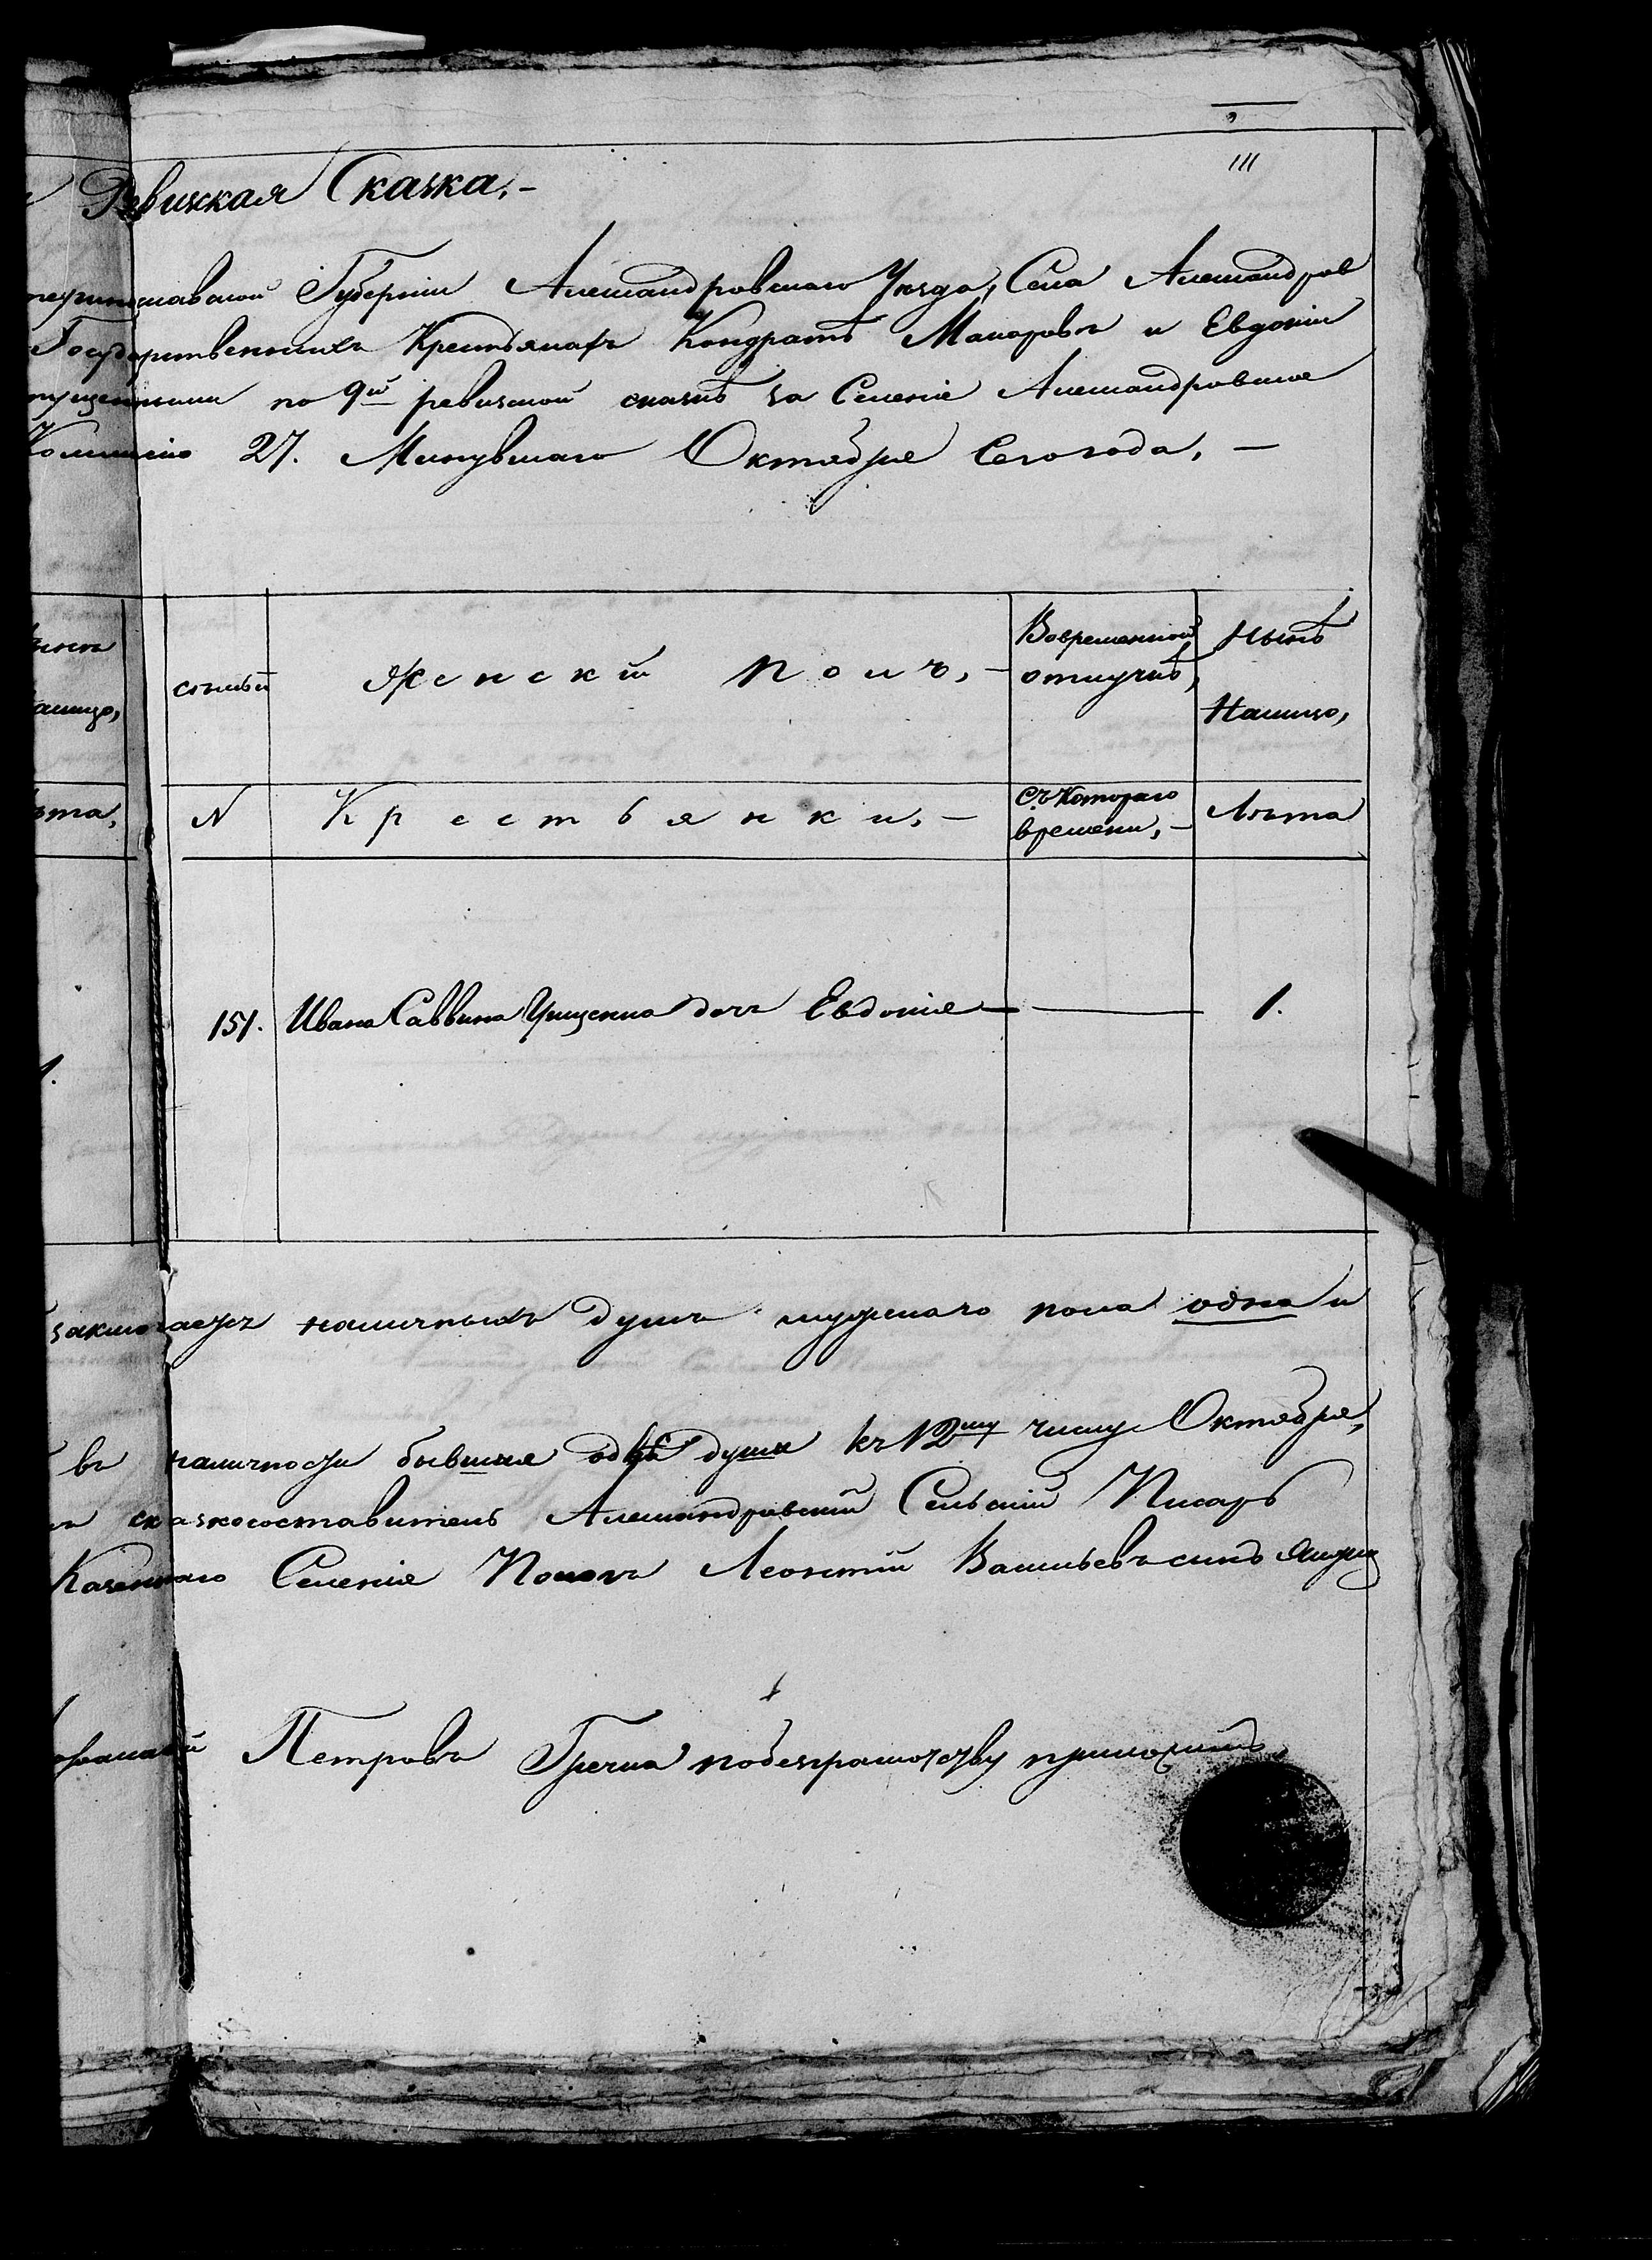 111
Ревижская Сказка,-
Губернии Александровскаго Уезда, Села Александров
Государственныхъ Крестьянахъ Кондратѣ Макаровъ и Евдокіи
по 9й ревизской сказкѣ за Селеніе Александровское
27. Минувшаго Октября Сего года, -
семьи
женскій полъ, -
Вовременной
отлучкѣ,
Нынѣ
Налицо,
ѣта,
N
Крестьянки, -
Съ Котораго
времени, -
Лѣта
1.
151. Ивана Саввина дочь Евдокія — — 1.
заключается наличныхъ душъ мужскаго пола одна и
въ наличности бывшая душа къ 12му числу Октября,
сказкосоставитель Александровскій Сельскій Писарь
Казеннаго Селенія Леонтій Васильевъ сынъ
Петровъ побезграмотству приложилъ